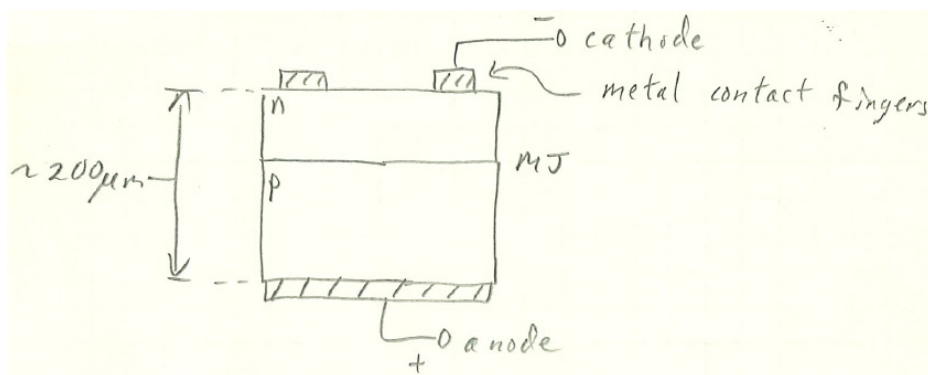 − cathode
metal contact fingers
n
MJ
~200μm
p
anode
+